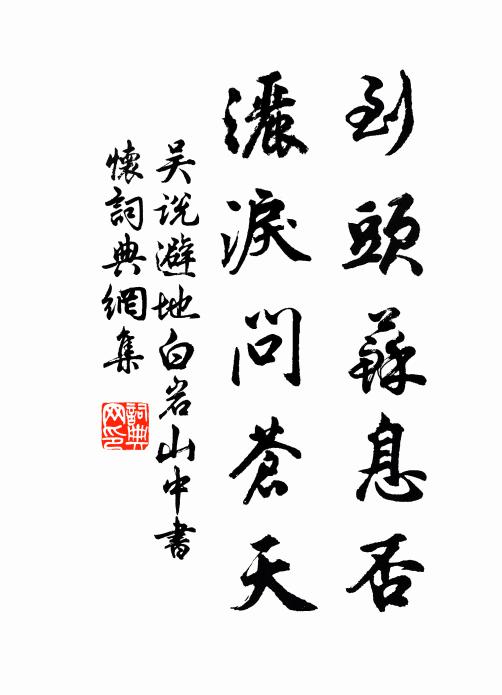 到頭蘇息否
灑淚問蒼天
吴説避地白岩山中書
懷詞典網集
詞典
网印